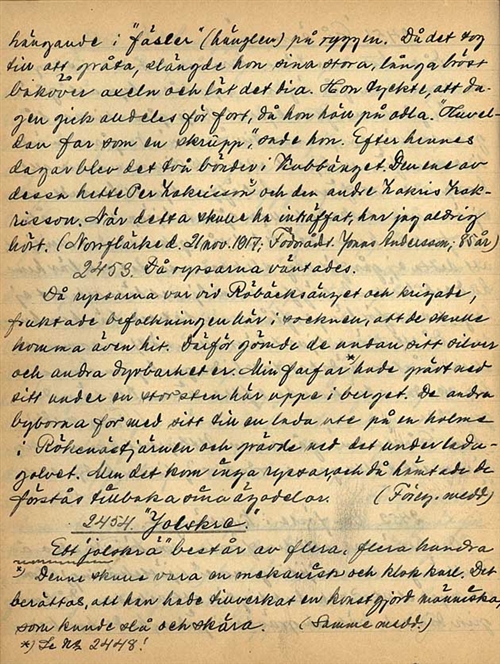 hängande i "fäsler" (hänglen) på ryggen. Då det tog
till att gråta, slängde hon sina stora, långa bröst
baköver axeln och lät det dia. Hon tyckte, att da-
gen gick alldeles för fort, då hon höll på odla. "Huvel-
dan far som en skrupp", sade hon. Efter hennes
dagar blev det två bönder i Kubbänget. Den ene av
dessa hette Per Zakrisson och den andre Zakris Zak-
risson. När detta skulle ha inträffat, har jag aldrig
hört. (Norrflärke d. 21 nov. 1917; Födorådst. Jonas Andersson, 85 år)
2453. Då ryssarna väntades.
Då ryssarna var vid Röbäcksänget och krigade,
fruktade befolkningen här i socknen, att de skulle
komma även hit. Därför gömde de undan sitt silver
och andra dyrbarheter. Min farfar* hade grävt ned
sitt under en stor sten här uppe i berget. De andra
byborna for med sitt till en lada ute på en holme
i Rökenästjärnen och grävde ned det under lada-
golvet. Men det kom inga ryssar, och då hämtade de
förstås tillbaka sina ägodelar. (Föreg. medd.)
2454. "Jolskra".
Ett "jolskrå" består av flera, flera hundra
*) Denne skulle vara en mekanikus och klok karl. Det
berättas, att han hade tillverkat en konstgjord människa,
som kunde slå och skära. (Samme medd.)
*) Se N:r 2448!